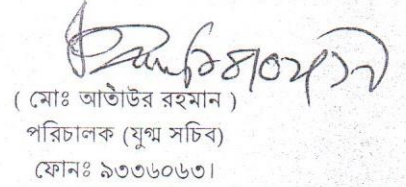 ( মোঃ আতাউর রহমান )
পরিচালক (যুগ্ম সচিব)
ফোনঃ ৯৩৩৬০৬৩।